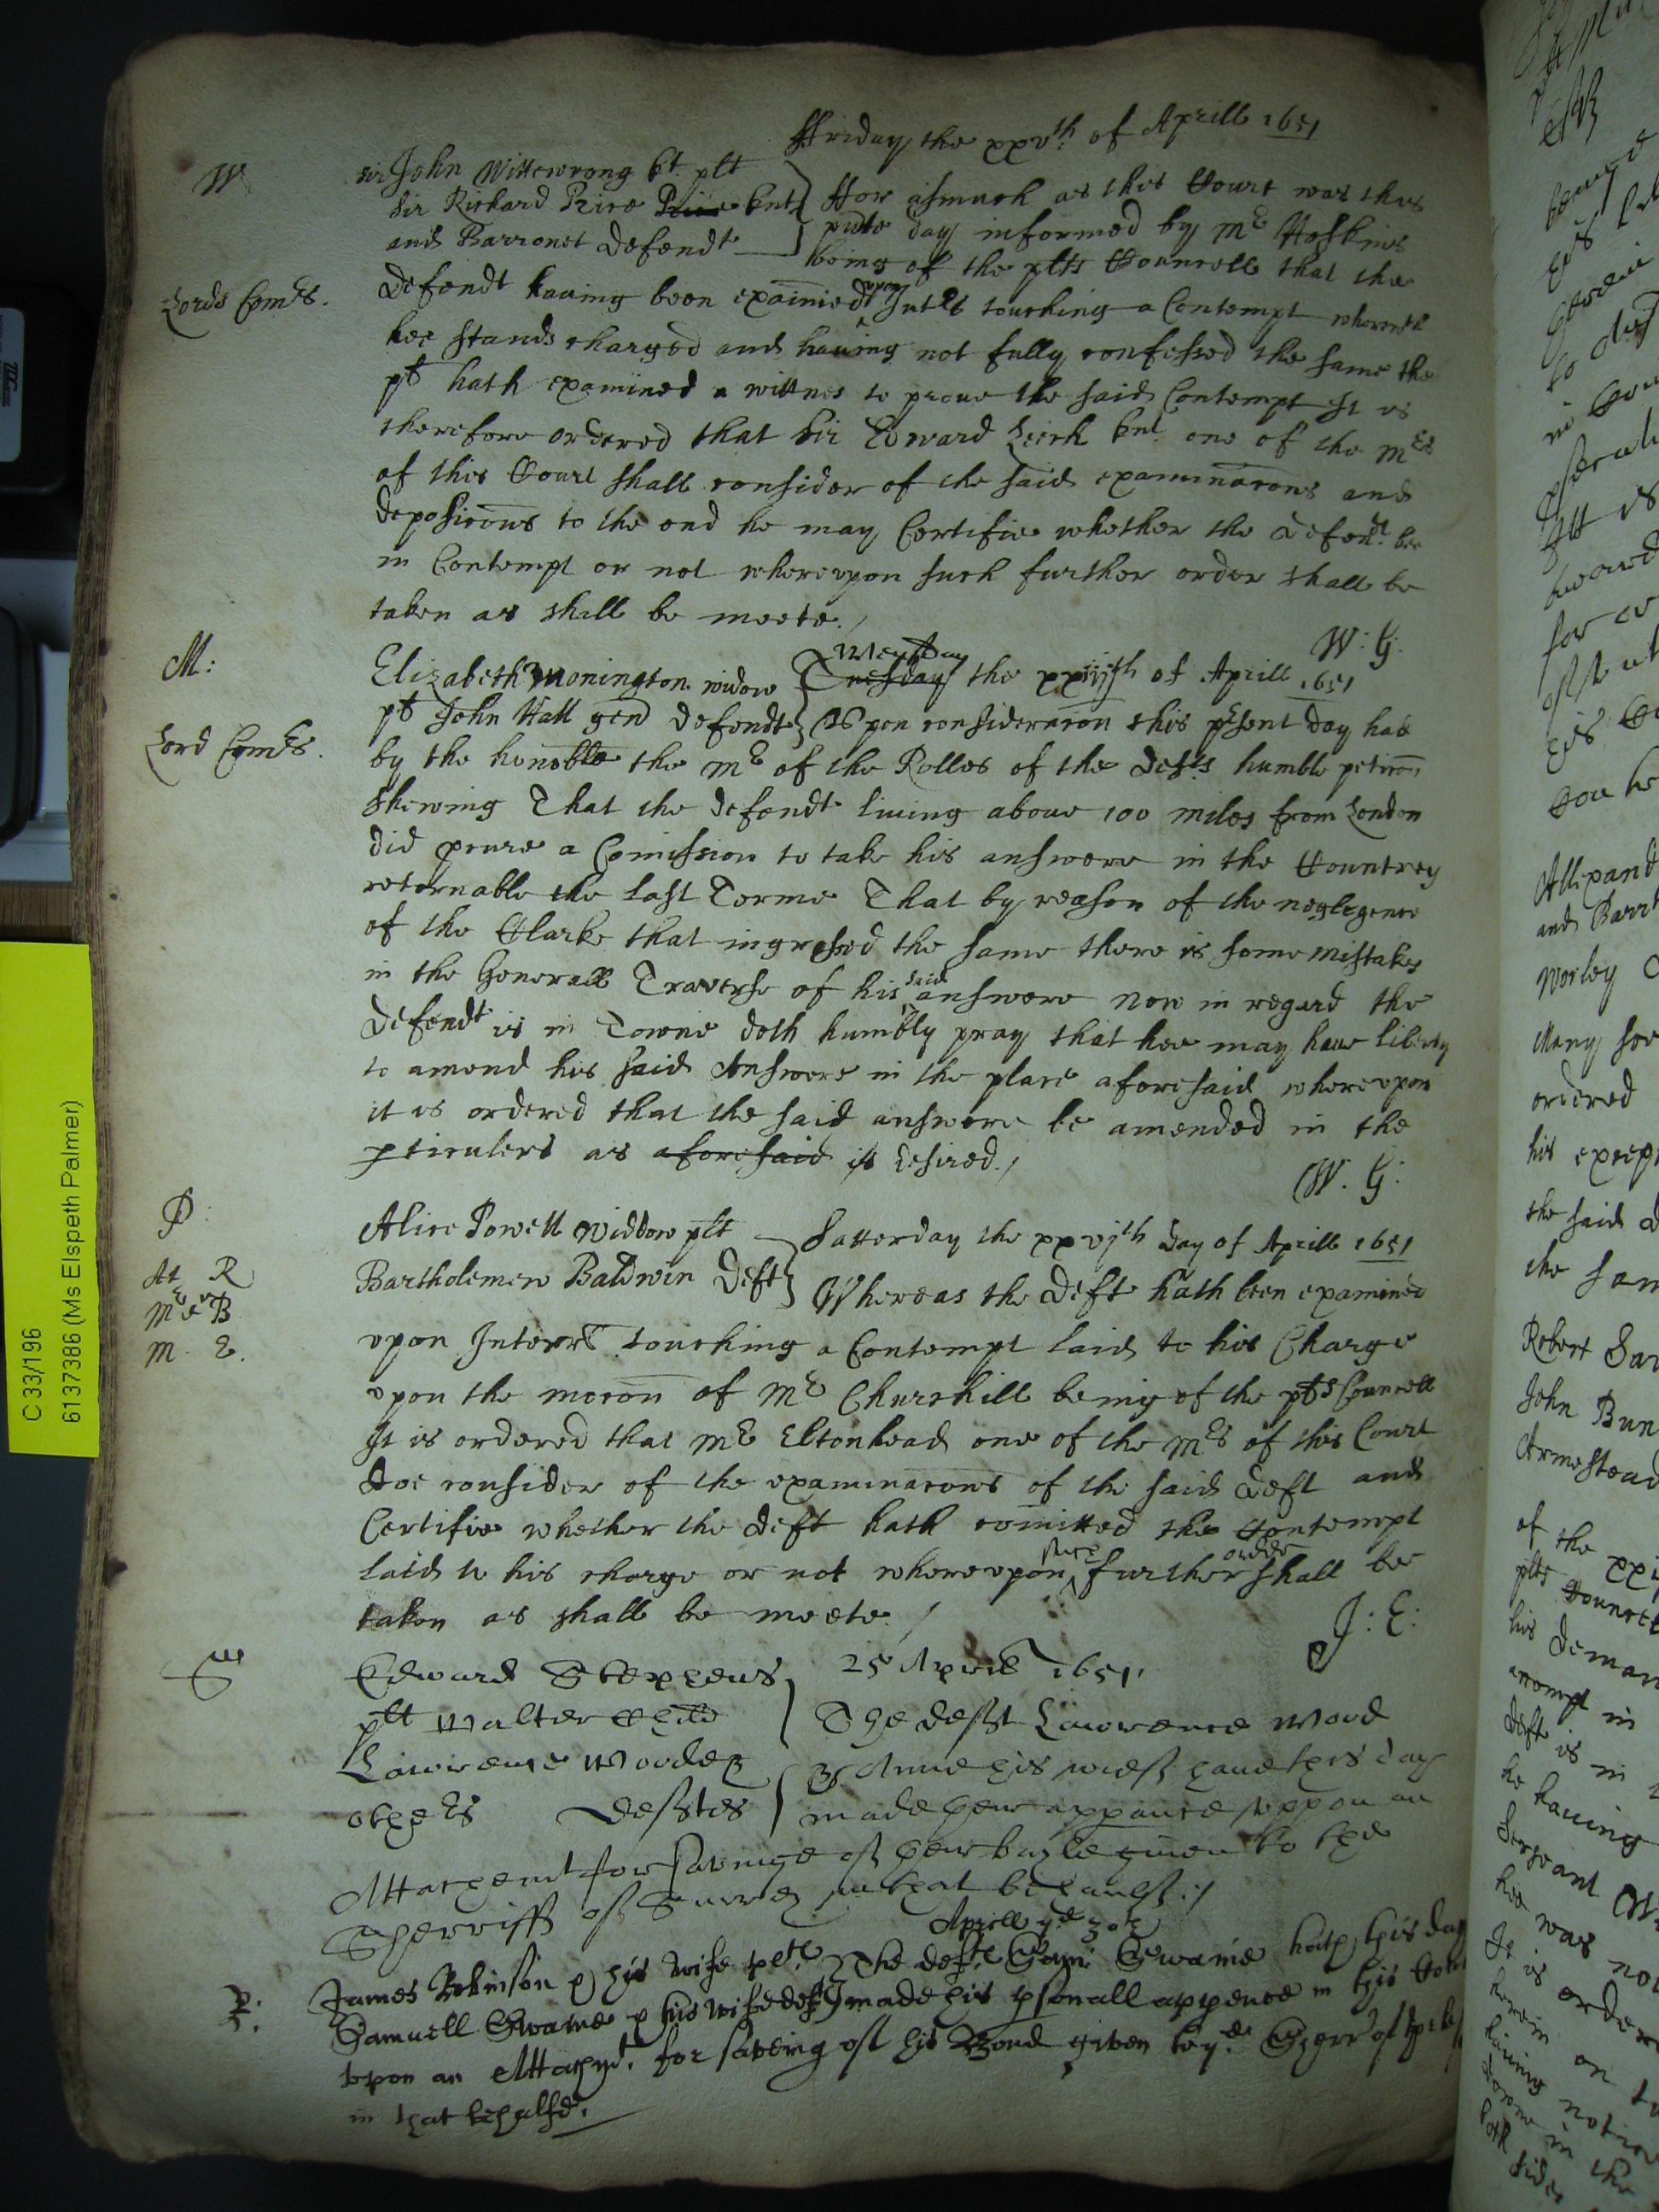 ffriday the xxvth of Aprill 1651
W
Sir John Wittewrong kt plt
Sir Richard Price Price knt
and Barronet Defendt
ffor asmuch as this Court was this
pnte day informed by Mr Hoskins
being of the plts Councell that the
Lords Comrs.
Defendt having been examined upon Intrs touching a Contempt wherewth
hee stands charged and having not fully confessed the same the
plt hath examined a wittnes to prove the said Contempt It is
therefore ordered that Sir Edward Leech knt one of the Mrs
of this Court shall consider of the said examinacons and
deposicons to the end he may Certifie whether the Defendt be
in Contempt or not whereupon such further order shall be
taken as shall be meete./
W: G:
M:
Elizabeth Monington widow
plt John Hall gen Defendt
Wensday Tuesday the xxiijth of Aprill 1651
Lord Comrs.
Upon consideracon this psent day had
by the honoble the Mr of the Rolles of the Defts humble peticon
shewing That the defendt living above 100 miles from London
did pcure a Comission to take his answere in the Countrey
retornable the last Terme That by reason of the neglegence
of the Clarke that ingrossed the same there is some mistakes
in the Generall Traverse of his said answere now in regard the
Defendt is in Towne doth humbly pray that hee may have liberty
to amend his said Answere in the place aforesaid whereupon
it is ordered that the said answere be amended in the
pticulers as aforesaid is desired./
W. G:
P:
Alice Powell Widdow plt
Bartholemew Baldwin Deft
Satterday the xxvjth day of Aprill 1651
At R
Mr B
M E.
Whereas the Deft hath been examined
upon Interr touching a Contempt laid to his Charge
upon the mocon of Mr Churchill being of the plts Councell
It is ordered that Mr Eltonhead one of the Mrs of this Court
doe consider of the examinacons of the said Deft and
Certifie whether the Deft hath comitted the Contempt
laid to his charge or not whereupon such further order shall be
taken as shall be meete./
J: E:
S
Edward Stephens
plt Walter
Lawrence Wood
others Defts
25 Aprill 1651
The deft Lawrence Wood
& Anne his wief have this day
made their appance uppon an
Attachemt for saveinge of their bayle given to the
Sherriff of Surrey in that behaulf:/
Aprill ye 30th
R:
James Robinson & his wife plts
Samuell Swaine & his wife defts
The deft Sam: Swaine hath this day
made his psonall appence in his
upon an Attachmt. for saveing of his Bond given to ye Sherr of
in that behalfe.
C 33/196
6137386 (Ms Elspeth Palmer)
Allexand
and Barr
Worley
Many
ordered
his excep
the said d
the sam
Robert Sa
John Bun
Armestead
of the xxi
plts Councell
his Deman
deft is in
he having
Serjeant
hee was no
It is order